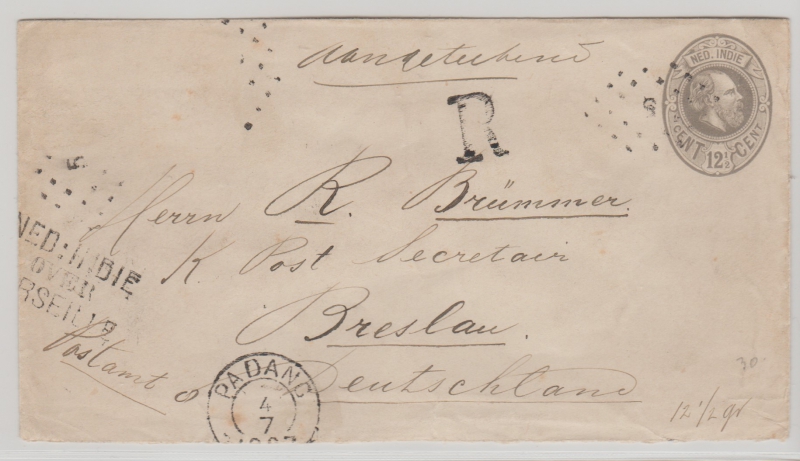 Aangeteekend
NED. INDIE
CENT 12½ CENT
R
Herrn R. Brümmer.
K Post Secretair
Breslau.
Deutschland
NED: INDIE
OVER
RSEILLE
Postamt
PADANG
4
7
30
12 1/2 gr